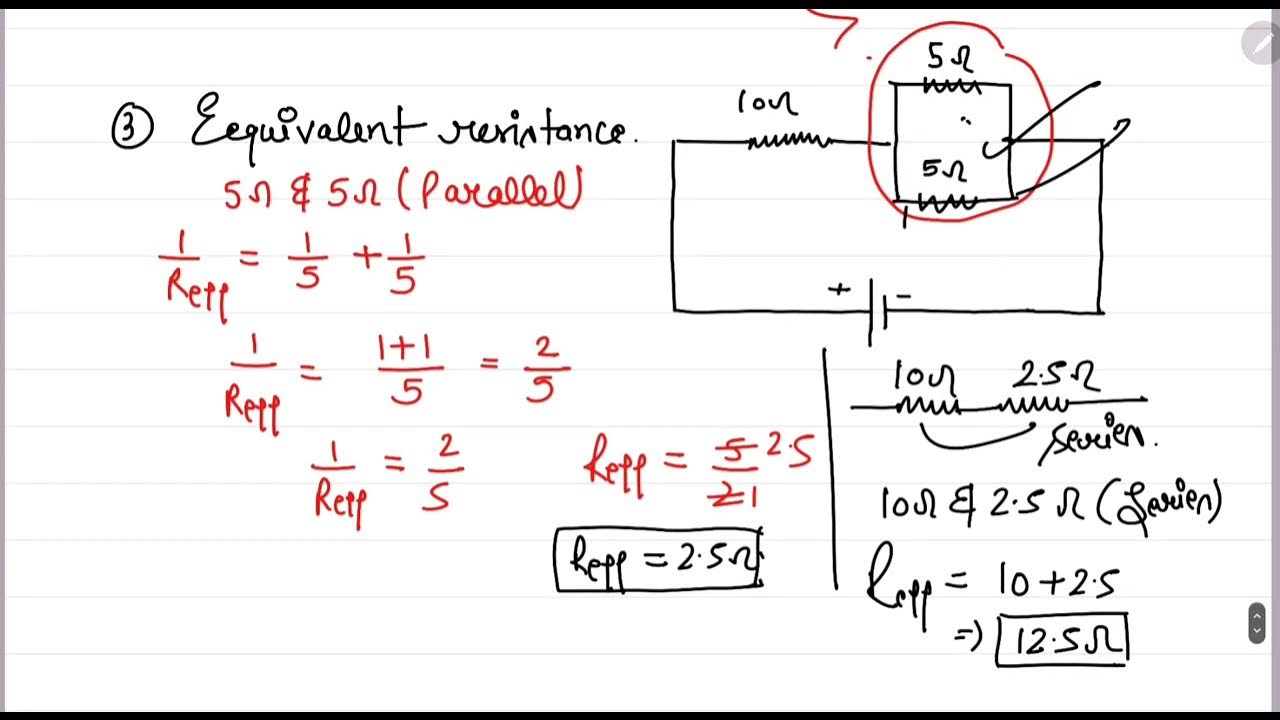 ③ Eequivalent resistance.
5Ω & 5Ω (Parallel)
1/Reff = 1/5 + 1/5
1/Reff = 1+1/5 = 2/5
1/Reff = 2/5
Reff = 5/2 2.5 1
Reff = 2.5Ω
10Ω
5Ω
5Ω
+ -
10Ω 2.5Ω
series.
10Ω & 2.5Ω (Series)
Reff = 10+2.5
=) 12.5Ω